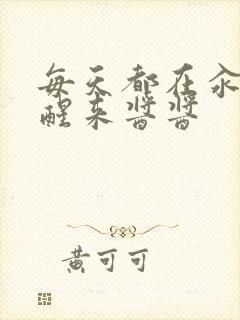 每天都在汆
醒来酱酱
黄可可